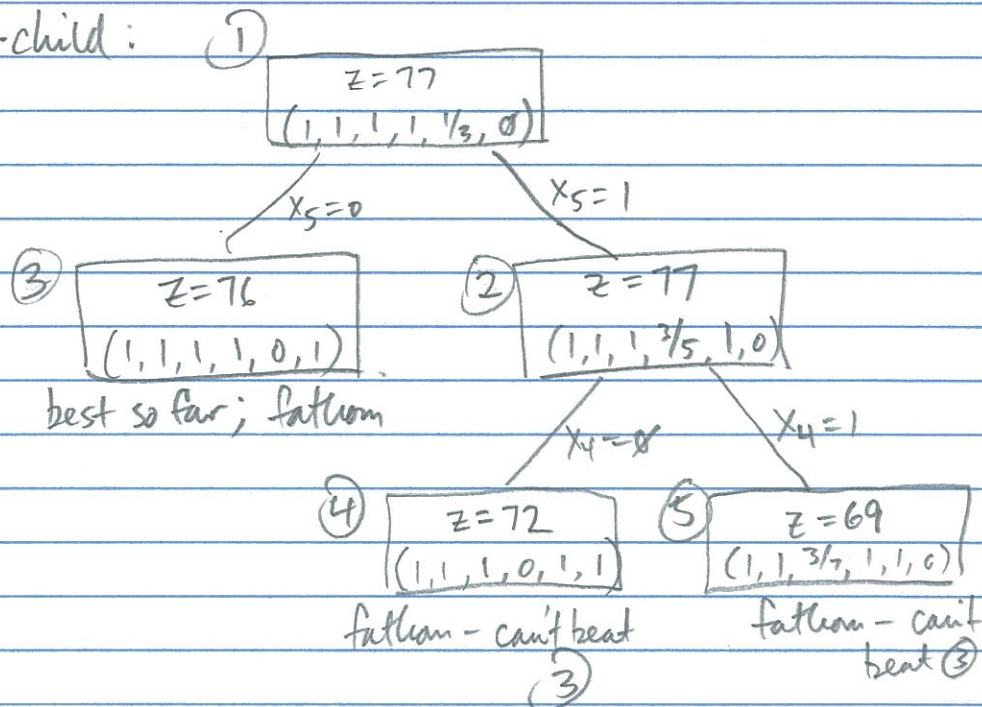 -child: ①
z=77
(1, 1, 1, 1, 1/3, 0)
x5=0
x5=1
③
z=76
(1, 1, 1, 1, 0, 1)
best so far; fathom
②
z=77
(1, 1, 1, 3/5, 1, 0)
x4=0
x4=1
④
z=72
(1, 1, 1, 0, 1, 1)
fathom - can't beat
③
⑤
z=69
(1, 1, 3/7, 1, 1, 0)
fathom - can't
beat ③